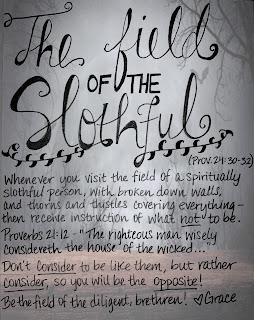 The field
OF THE
Slothful
(Prov. 24:30-32)
Whenever you visit the field of a spiritually
slothful person, with broken down walls,
and thorns and thistles covering everything-
then receive instruction of what not to be.
Proverbs 21:12 - "The righteous man wisely
considereth the house of the wicked..."
Don't Consider to be like them, but rather
consider, so you will be the opposite!
Be the field of the diligent, brethren! ♡Grace